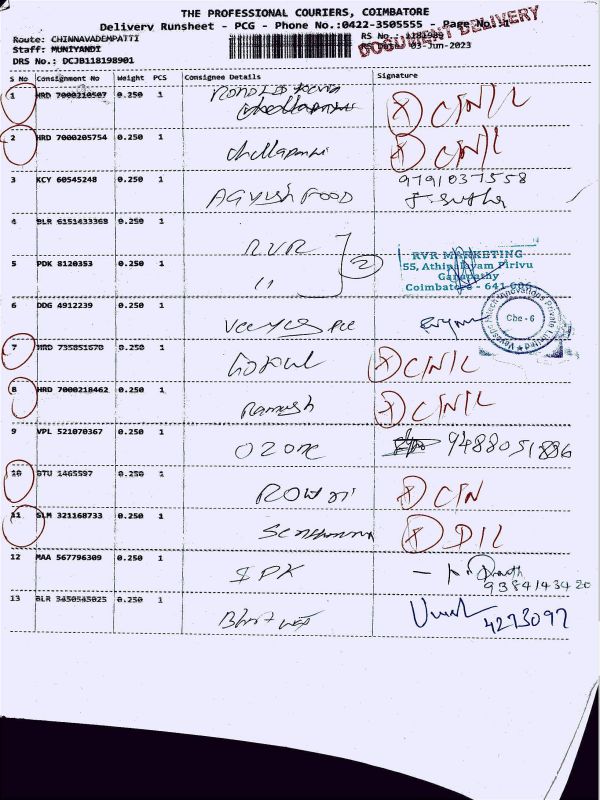 THE PROFESSIONAL COURIERS, COIMBATORE
Delivery Runsheet - PCG - Phone No.:0422-3505555 - Page No.:1
Route: CHINNAVADEMPATTI
RS No.: 1181989
Staff: MUNIYANDI
Date: 03-Jun-2023
DOCUMENT DELIVERY
DRS No.: DCJB118198901
S No Consignment No Weight PCS Consignee Details Signature
1 HRD 7000210507 0.250 1 C/N/L
2 HRD 7000205754 0.250 1 C/N/L
3 KCY 60545248 0.250 1 FOOD 9791037558
4 BLR 6151433368 0.250 1 RVR 2
RVR MARKETING
55, Athipalayam Pirivu
5 PDK 8120353 0.250 1 "
Ganapathy
Coimbatore - 641 006
6 DDG 4912239 0.250 1
Cbe - 6
7 HRD 735851670 0.250 1 Gokul C/N/L
8 HRD 7000218462 0.250 1 Ramesh C/N/L
9 VPL 521070367 0.250 1 OZONE 9488051886
10 BTU 1465597 0.250 1 C/N
11 SLM 321168733 0.250 1 D/L
12 MAA 567796309 0.250 1 SPK 9384143420
13 BLR 3450545025 0.250 1 4273097